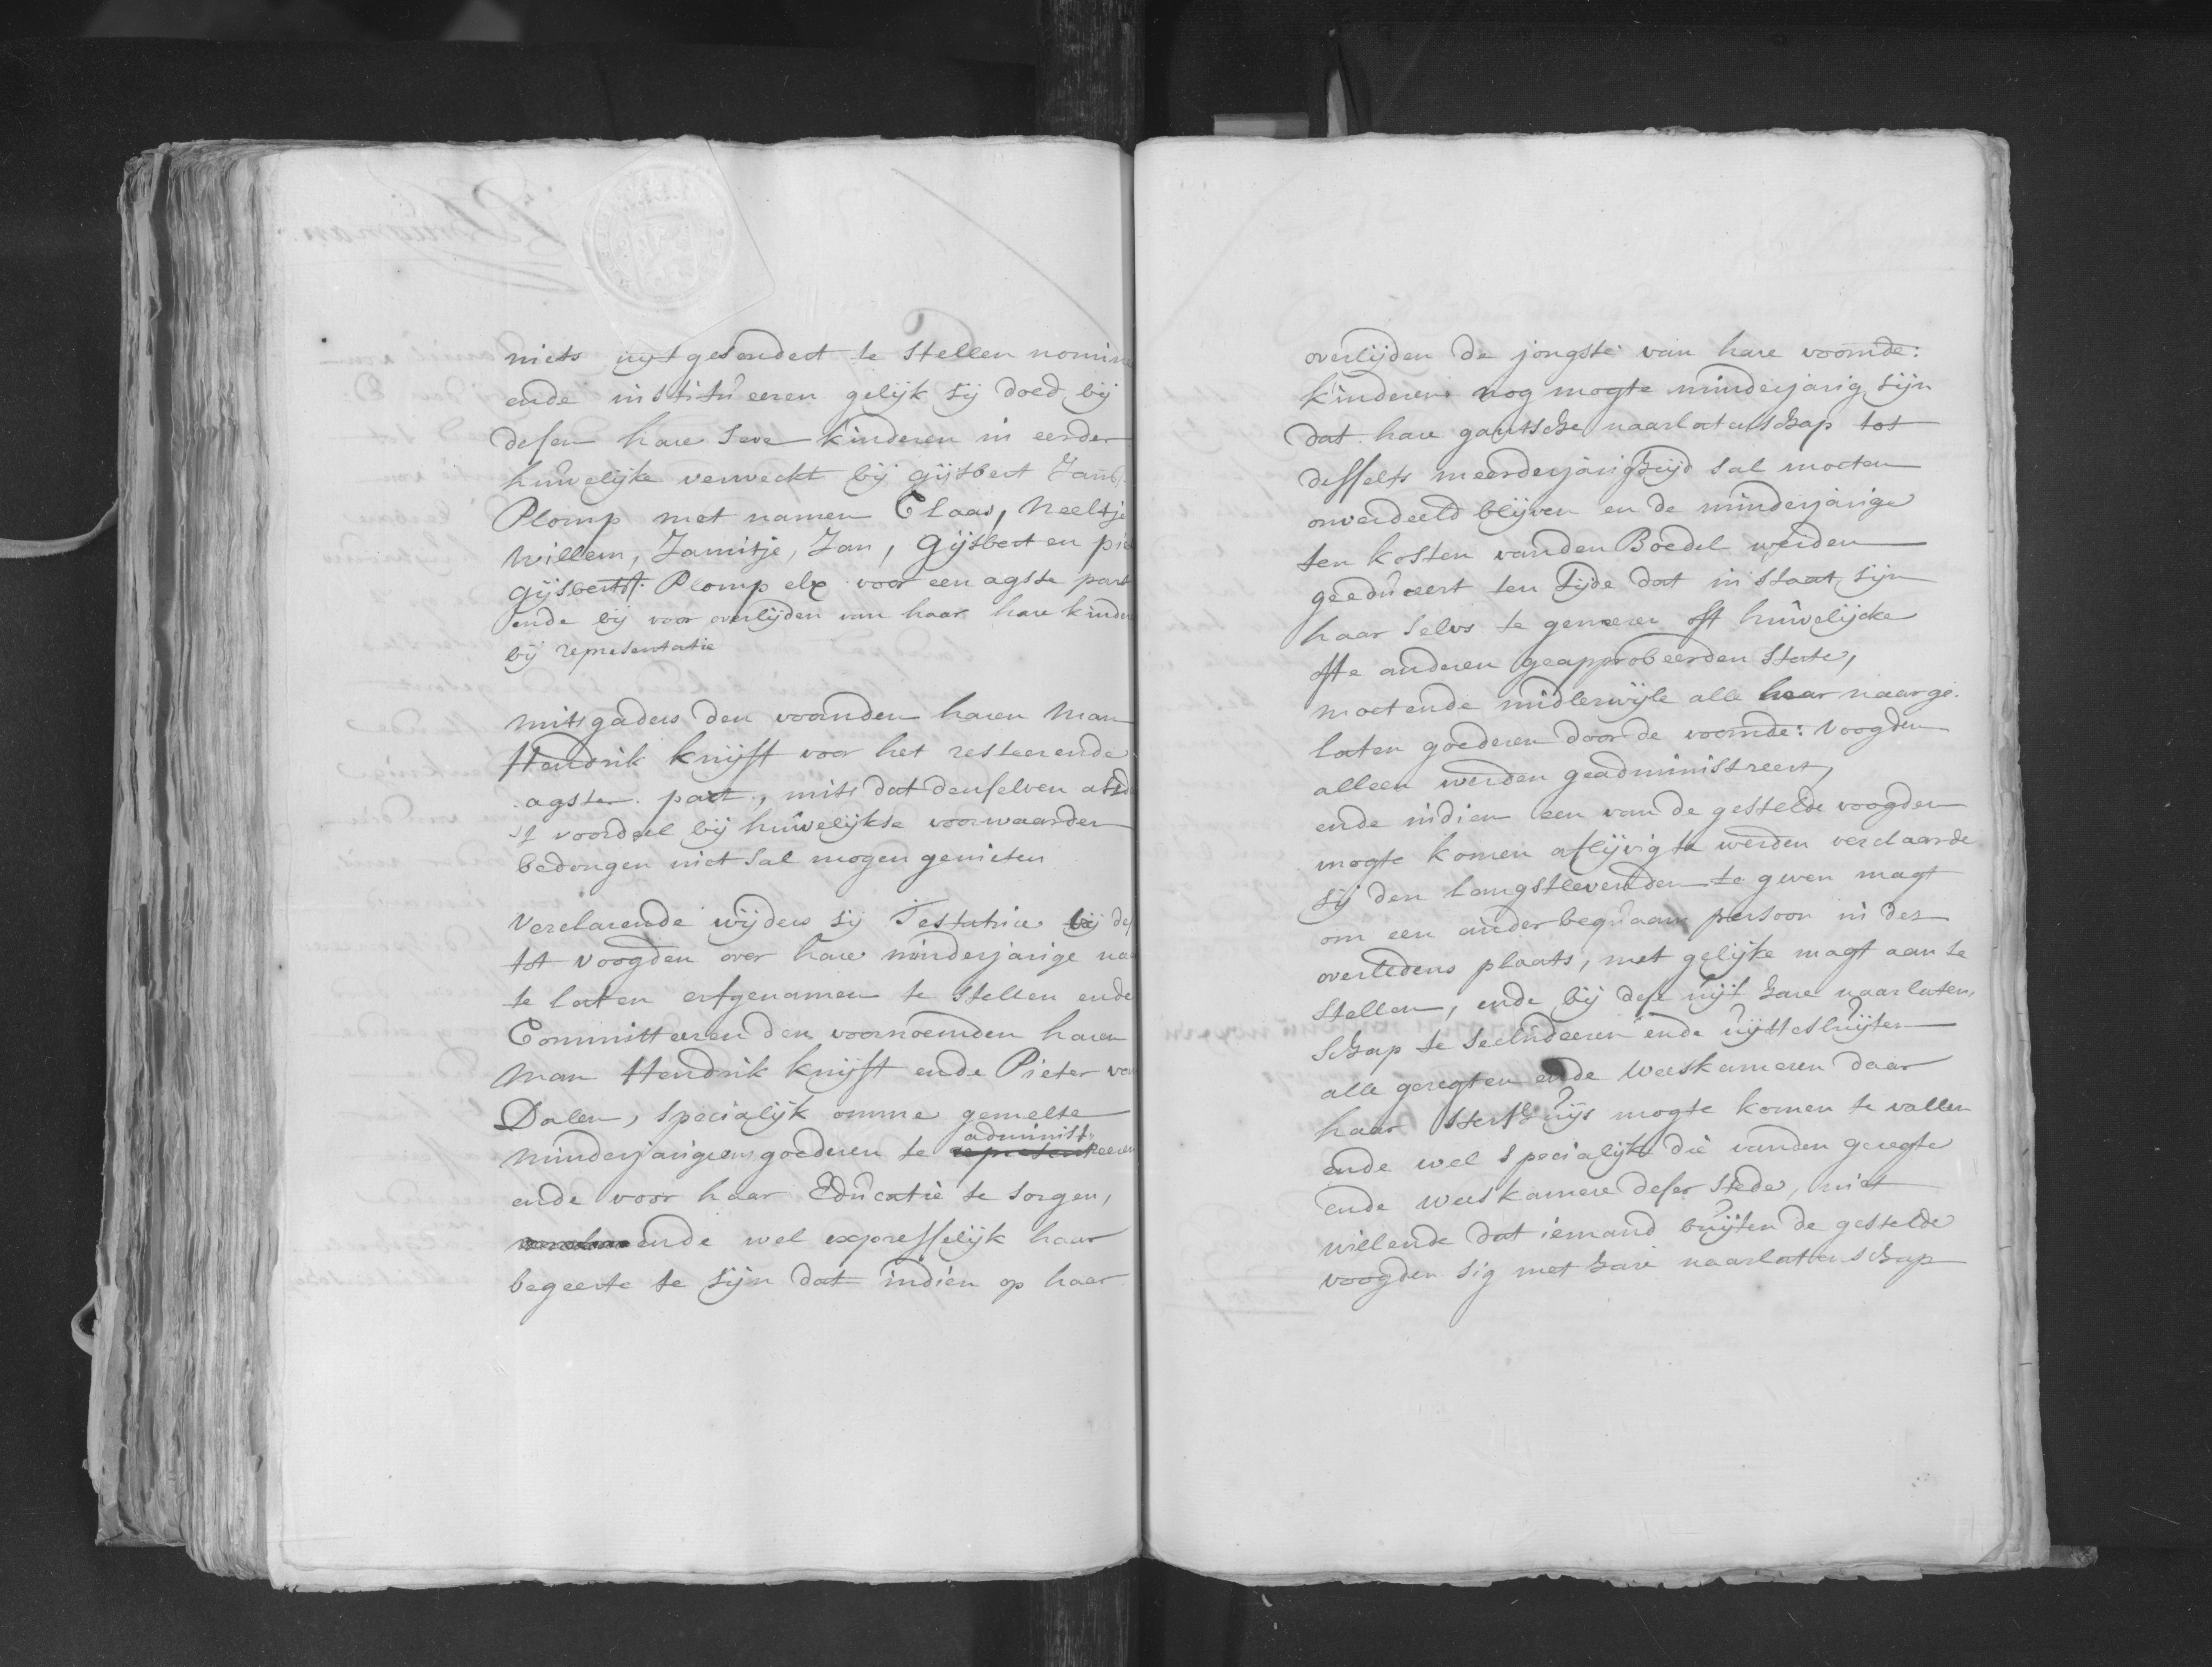 niets uijtgesondert te stellen nomine
ende institueeren gelijk sij doed bij
desen hare seve kinderen in eerder
huwelijke verweckt bij gijsbert Jansz
Plomp met namen Claas, Neeltje
Willem, Jannitje, Jan, Gijsbert en pie
gijsbertsz: Plomp elx voor een agste part
ende bij voor overlijden van haar hare kinder
bij representatie
mitsgaders den voornden haren Man
Hendrik knijff voor het resteerende
agste part, mits dat denselven als dan
't voordeel bij huwelijkse voorwaarden
bedongen niet sal mogen genieten
Verclarende wijders sij Testatrice bij des
tot voogden over hare minderjarige na
te laten erfgenamen te stellen ende
Committeeren den voornoemden haren
Man Hendrik knijff ende Pieter van
Dalen, specialijk omme gemelte
administ
minderjarigens goederen te representeeren
ende voor haar Educatie te sorgen,
ende wel expresselijk haar
begeerte te sijn dat indien op haar
overlijden de jongste van hare voornde:
kinderen nog mogte minderjarig sijn
dat hare gantsche naarlatenschap tot
desselfs meerderjarigheijd sal moeten
onverdeeld blijven en de minderjarige
ten kosten vanden Boedel werden
geeduceert ten tijde dat in staat sijn
haar selvs te generen off huwelijcke
ofte anderen geapprobeerden state,
moetende midlerwijle alle haar naarge-
laten goederen door de voornde: voogden
alleen werden geadministreert,
ende indien een van de gestelde voogden
mogte komen aflijvig te werden verclaarde
sij den langstlevenden te geven magt
om een ander bequaam persoon in des
overledens plaats, met gelijke magt aan te
stellen, ende bij dese uijt hare naarlaten-
schap te secludeeren ende uijttesluijten
alle geregten ende weeskameren daar
haar sterfhuijs mogte komen te vallen
ende wel specialijk die vanden geregte
ende weeskamere deser stede, niet
willende dat iemand buijten de gestelde
voogden sig met hare naarlatenschap